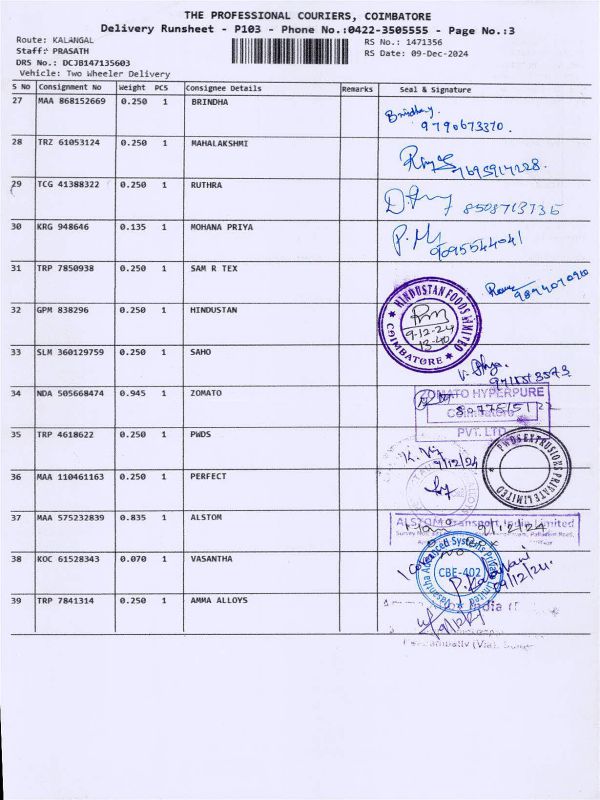 THE PROFESSIONAL COURIERS, COIMBATORE
Delivery Runsheet - P103 - Phone No.:0422-3505555 - Page No.:3
Route: KALANGAL
RS No.: 1471356
Staff: PRASATH
RS Date: 09-Dec-2024
DRS No.: DCJB147135603
Vehicle: Two Wheeler Delivery
S No Consignment No Weight PCS Consignee Details Remarks Seal & Signature
27 MAA 868152669 0.250 1 BRINDHA
Brindha y.
9790673370.
28 TRZ 61053124 0.250 1 MAHALAKSHMI
29 TCG 41388322 0.250 1 RUTHRA
8508713735
30 KRG 948646 0.135 1 MOHANA PRIYA
P.M
9095544041
31 TRP 7850938 0.250 1 SAM R TEX
32 GPM 838296 0.250 1 HINDUSTAN
HINDUSTAN FOODS LIMITED
9-12-24
13-40
★ COIMBATORE ★
33 SLM 360129759 0.250 1 SAHO
34 NDA 505668474 0.945 1 ZOMATO
ZOMATO HYPERPURE
PVT. LTD
35 TRP 4618622 0.250 1 PWDS
9/12/24
PWDS EXTRUSIONS PRIVATE LIMITED
36 MAA 110461163 0.250 1 PERFECT
37 MAA 575232839 0.835 1 ALSTOM
ALSTOM Transport India Limited
9/12/24
38 KOC 61528343 0.070 1 VASANTHA
Vasantha Advanced Systems Private Limited
CBE-402
09/12/24.
39 TRP 7841314 0.250 1 AMMA ALLOYS
India